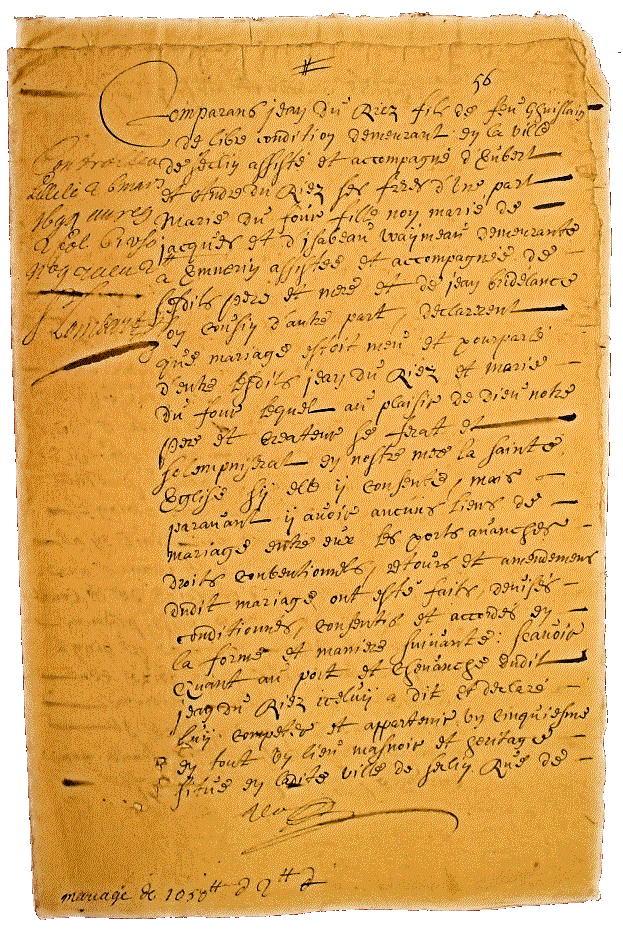 56
Comparans jean du Riez fils de feu Ghuislain
de libre condition demeurant en la ville
de seclin assisté et accompagné d'hubert
et andre du Riez ses freres d'une part
Marie du four fille non marié de
jacques et d'isabeau waymeau demeurante
a Emmerin assistée et accompagnée de
sesdits pere et mere et de jean bridelance
son cousin d'autre part, declarerent
que mariage estoit meu et pourparlé
d'entre lesdits jean du Riez et marie
du four lequel au plaisir de dieu notre
pere et createur se ferat et
solempniserat en nostre mere la sainte
Eglise sy elle y consente, mais
paravant y avoir aucuns liens de
mariage entre eux les ports avanches
droits conventionnels, retours et amendemens
dudit mariage ont esté faits, devisés
conditionnés, consentis et accordés en
la forme et maniere suivante: scavoir
Quant au port et chevanche dudit
jean du Riez iceluy a dit et declaré
luy competer et appartenir un cinquiesme
en tout un lieu manoir et heritage
situé en ladite ville de seclin Rue de
Controllé a
Lille le 2 6 mars
1694
Lombart
mariage de 1050